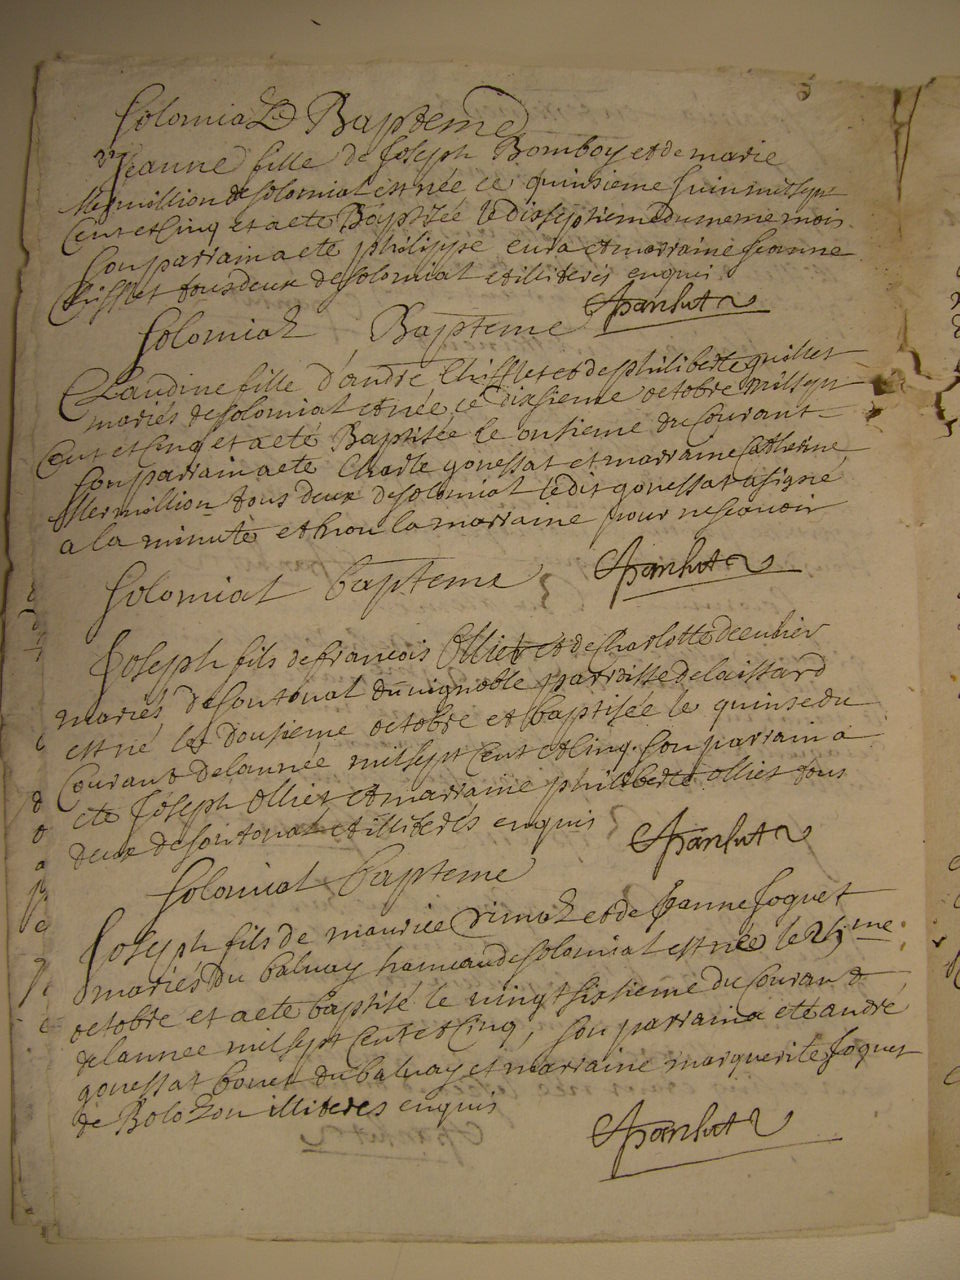 Solomiat Bapteme
Jeanne fille de Joseph Bomboy et de marie
Mermillion de Solomiat est née ce quinsieme Juin mil sept
Cent et Cinq et a eté Baptisée le disseptieme du meme mois
Son parrain a ete philippe cura et marraine Jeanne
Chifflet tous deux de Solomiat et illiterés enquis
Solomiat Bapteme
Claudine fille d'andré Chifflet et de philiberte guillet
mariés de Solomiat est née ce dixsieme octobre mil sept
Cent et Cinq et a eté Baptisée le onsieme du Courant
Son parrain a ete Charle gonessat et marraine Catherine
Mermillion tous deux de Solomiat le dit gonessat a signé
a la minute et non la marraine pour ne scavoir
Solomiat bapteme
Joseph fils de francois Olliet et de Charlotte
mariés de Soutonat du vignoble parroisse de laissard
est né le dousieme octobre et baptisée le quinse du
Courant de lannée mil sept Cent et Cinq. Son parrain a
ete Joseph Olliet et marraine philiberte olliet tous
deux de Soutonat et illiterés enquis
Solomiat bapteme
Joseph fils de maurice et de Jeanne Joguet
mariés du balvay hameau de Solomiat est née le 25me
octobre et a ete baptisé le vingt sixsieme du Courant
de lannee mil sept Cent et Cinq, Son parrain a ete andré
gonessat bovet du balvay et marraine marguerite Joguet
de Bolozon illiteres enquis